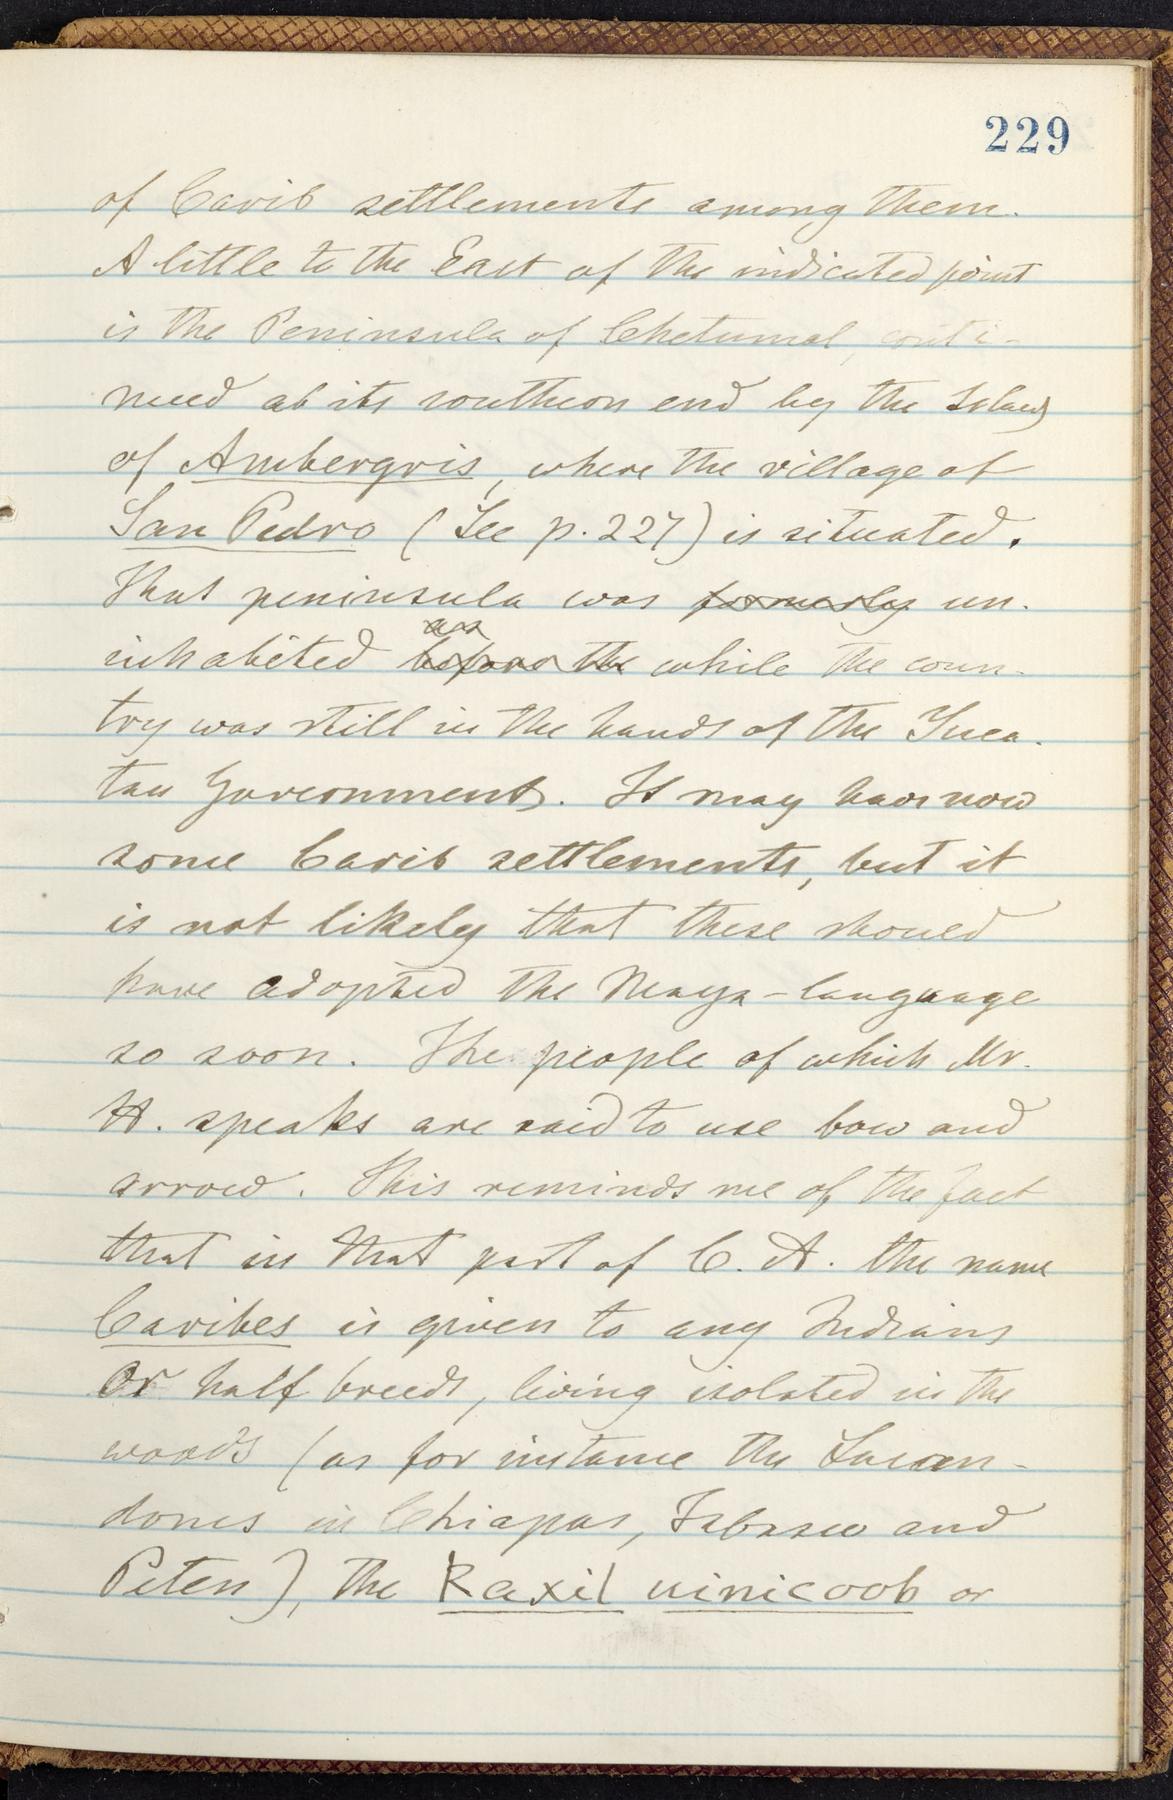 229
of Carib settlements among them.
A little to the East of the indicated point
is the Peninsula of Chetumal, conti-
nued at its southern end by the Island
of Ambergris, where the village of
San Pedro (See p. 227) is situated.
That peninsula was formerly un-
as
inhabited before the while the coun-
try was still in the hands of the Yuca-
tan Government. It may have now
some Carib settlements, but it
is not likely that these should
have adopted the Maya-language
so soon. The people of which Mr.
H. speaks are said to use bow and
arrow. This reminds me of the fact
that in that part of C. A. the name
Caribes is given to any Indians
or half breeds, living isolated in the
woods (as for instance the Lacan-
dones in Chiapas, Tabasco and
Peten), the Kaxil uinicoob or